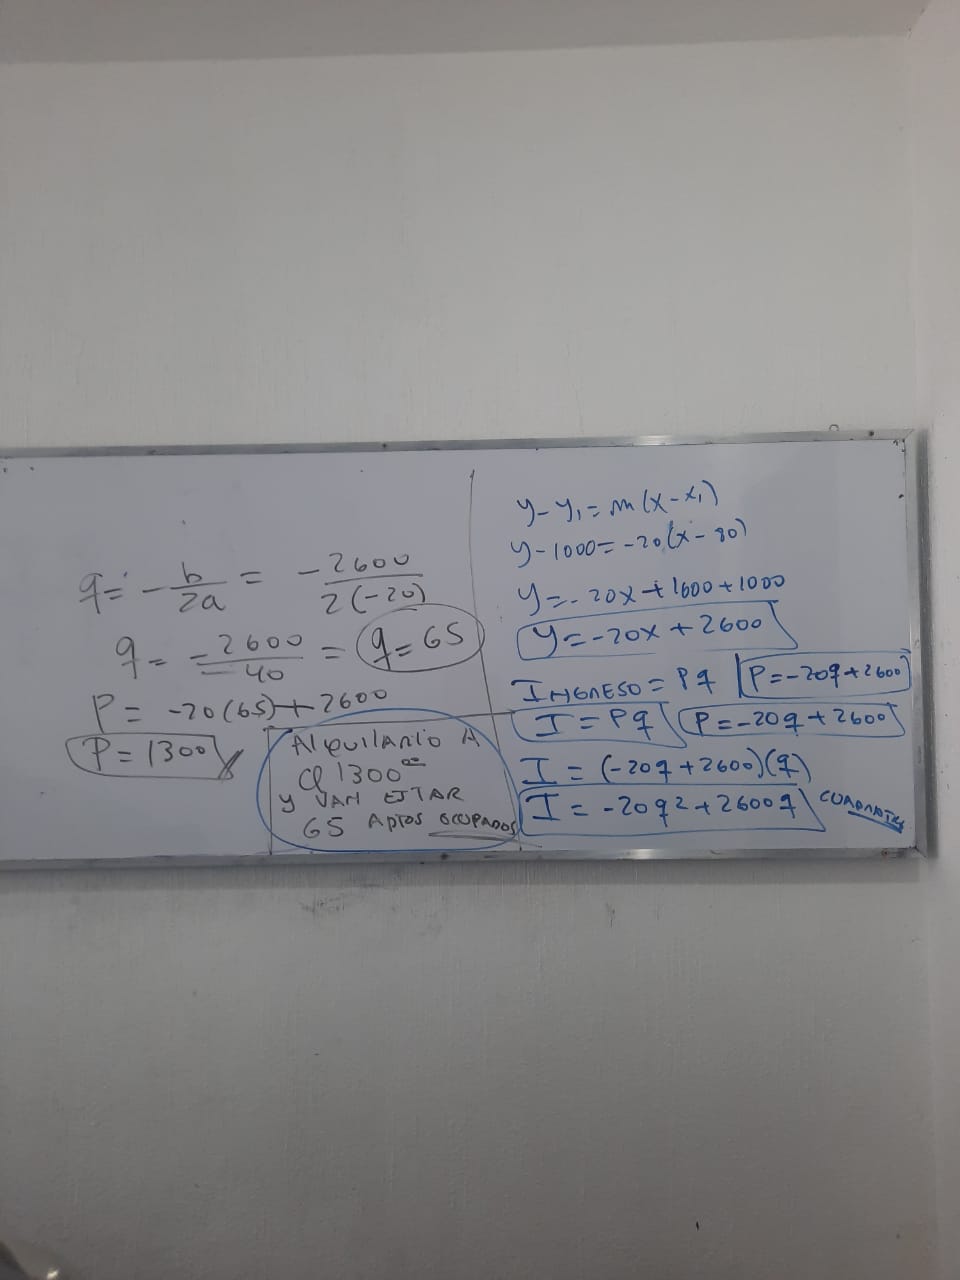 q = -b/2a = -2600/2(-20)
q = -2600/-40 = q = 65
P = -20(65) + 2600
P = 1300
Alquilarlo A
Q 1300⁰⁰
y VAN ESTAR
65 APTOS OCUPADOS
y - y₁ = m(x - x₁)
y - 1000 = -20(x - 80)
y = -20x + 1600 + 1000
y = -20x + 2600
INGRESO = Pq | P = -20q + 2600
I = Pq P = -20q + 2600
I = (-20q + 2600)(q)
I = -20q² + 2600q